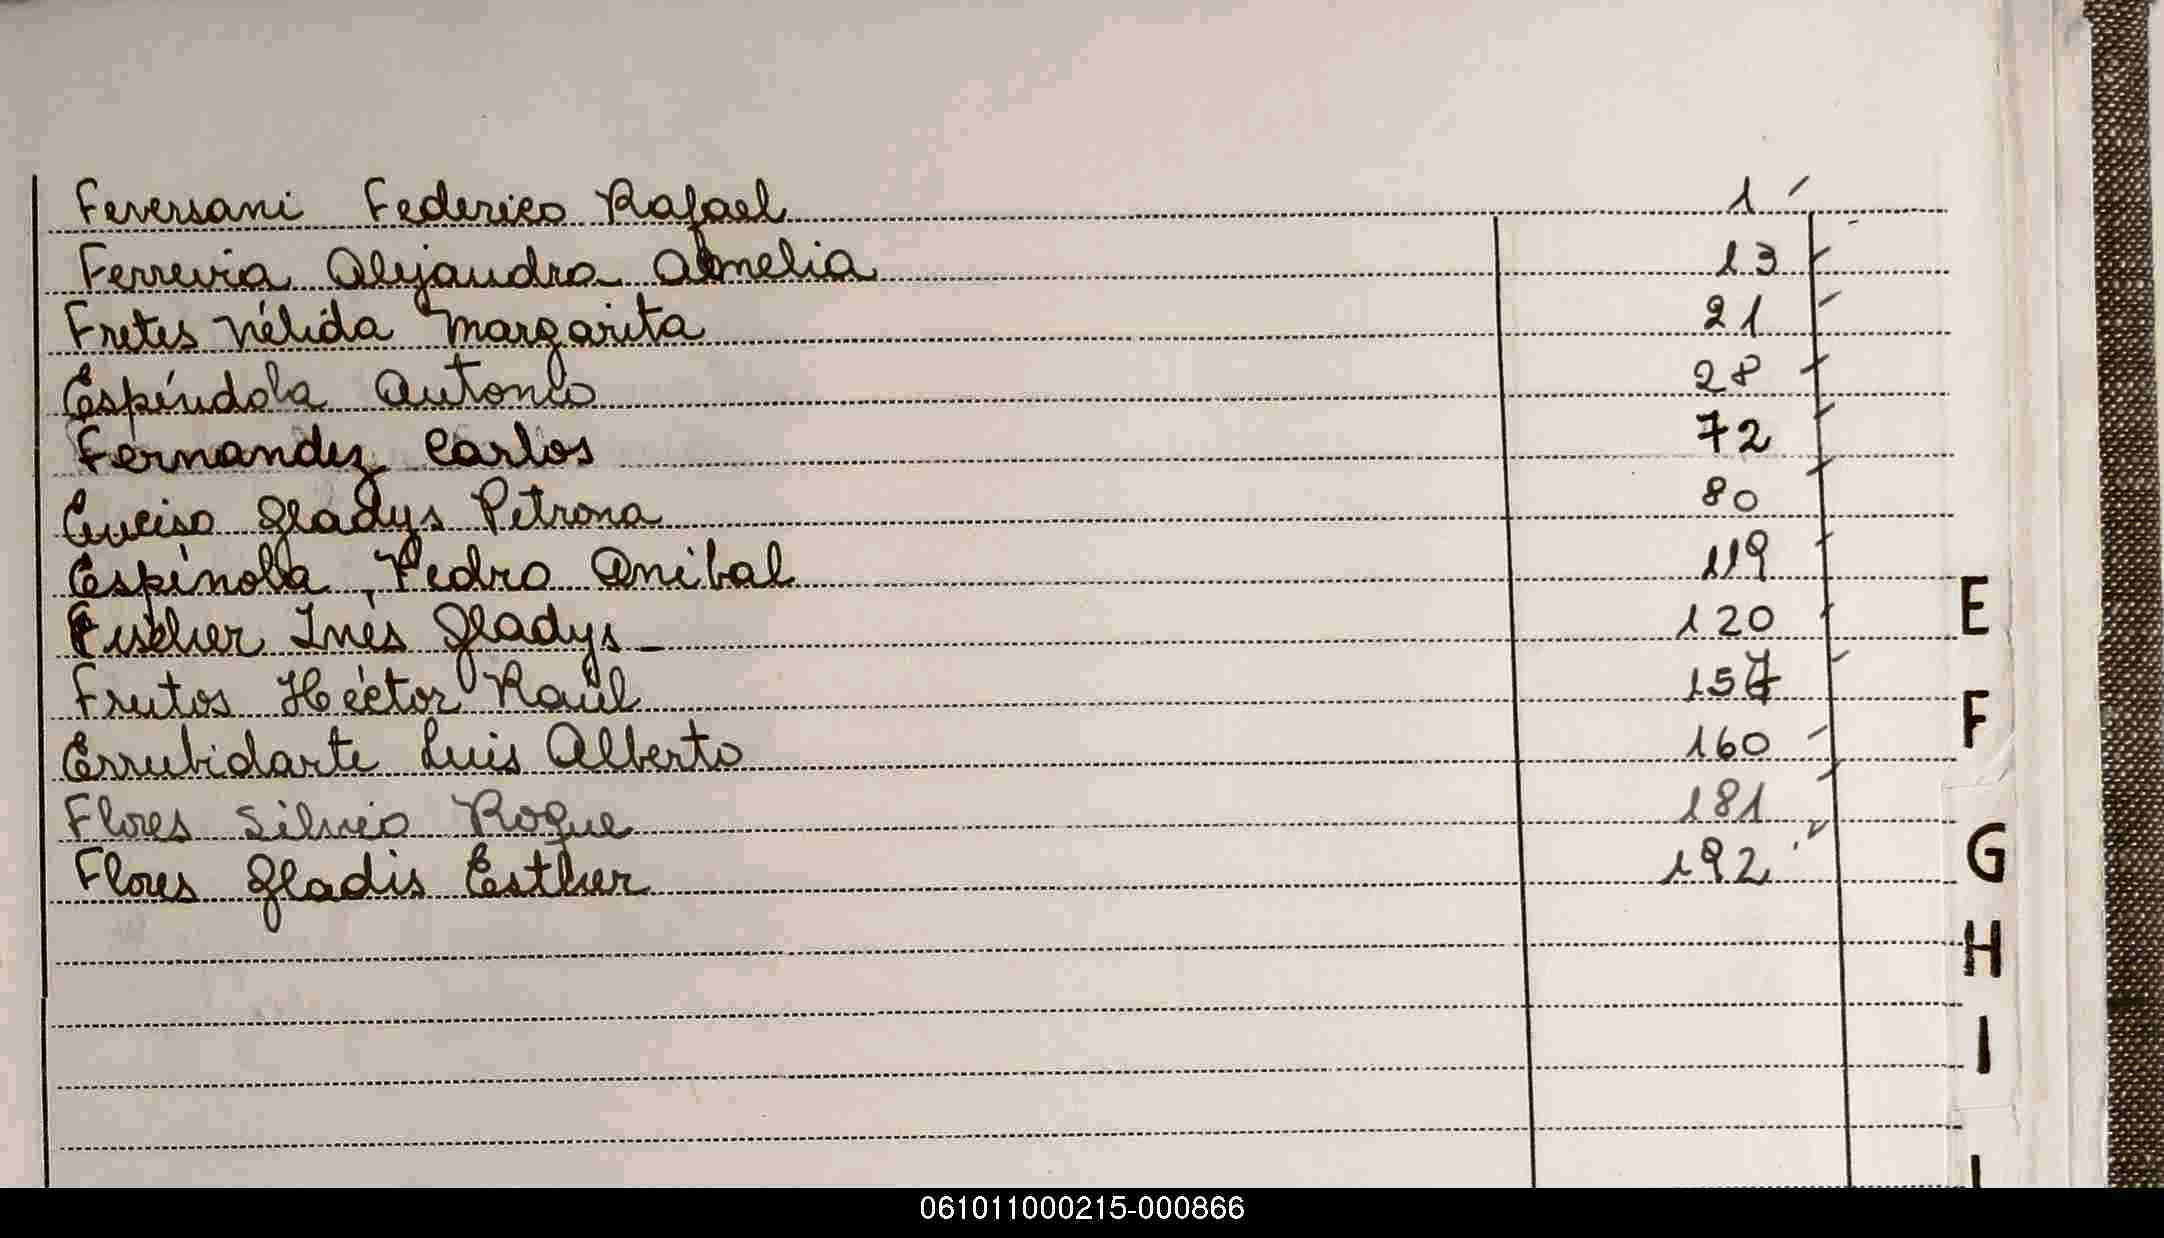 Feversani Federico Rafael 1
Ferreira Alejandra Amelia 13
Fretes Nélida Margarita 21
Espíndola Antonio 28
Fernandez Carlos 72
Enciso Gladys Petrona 80
Espínola, Pedro Anibal 119
Fischer Inés Gladys 120
Frutos Héctor Raúl 157
Errubidarte Luis Alberto 160
Flores Silvio Roque 181
Flores Gladis Esther 192
E
F
G
H
I
061011000215-000866